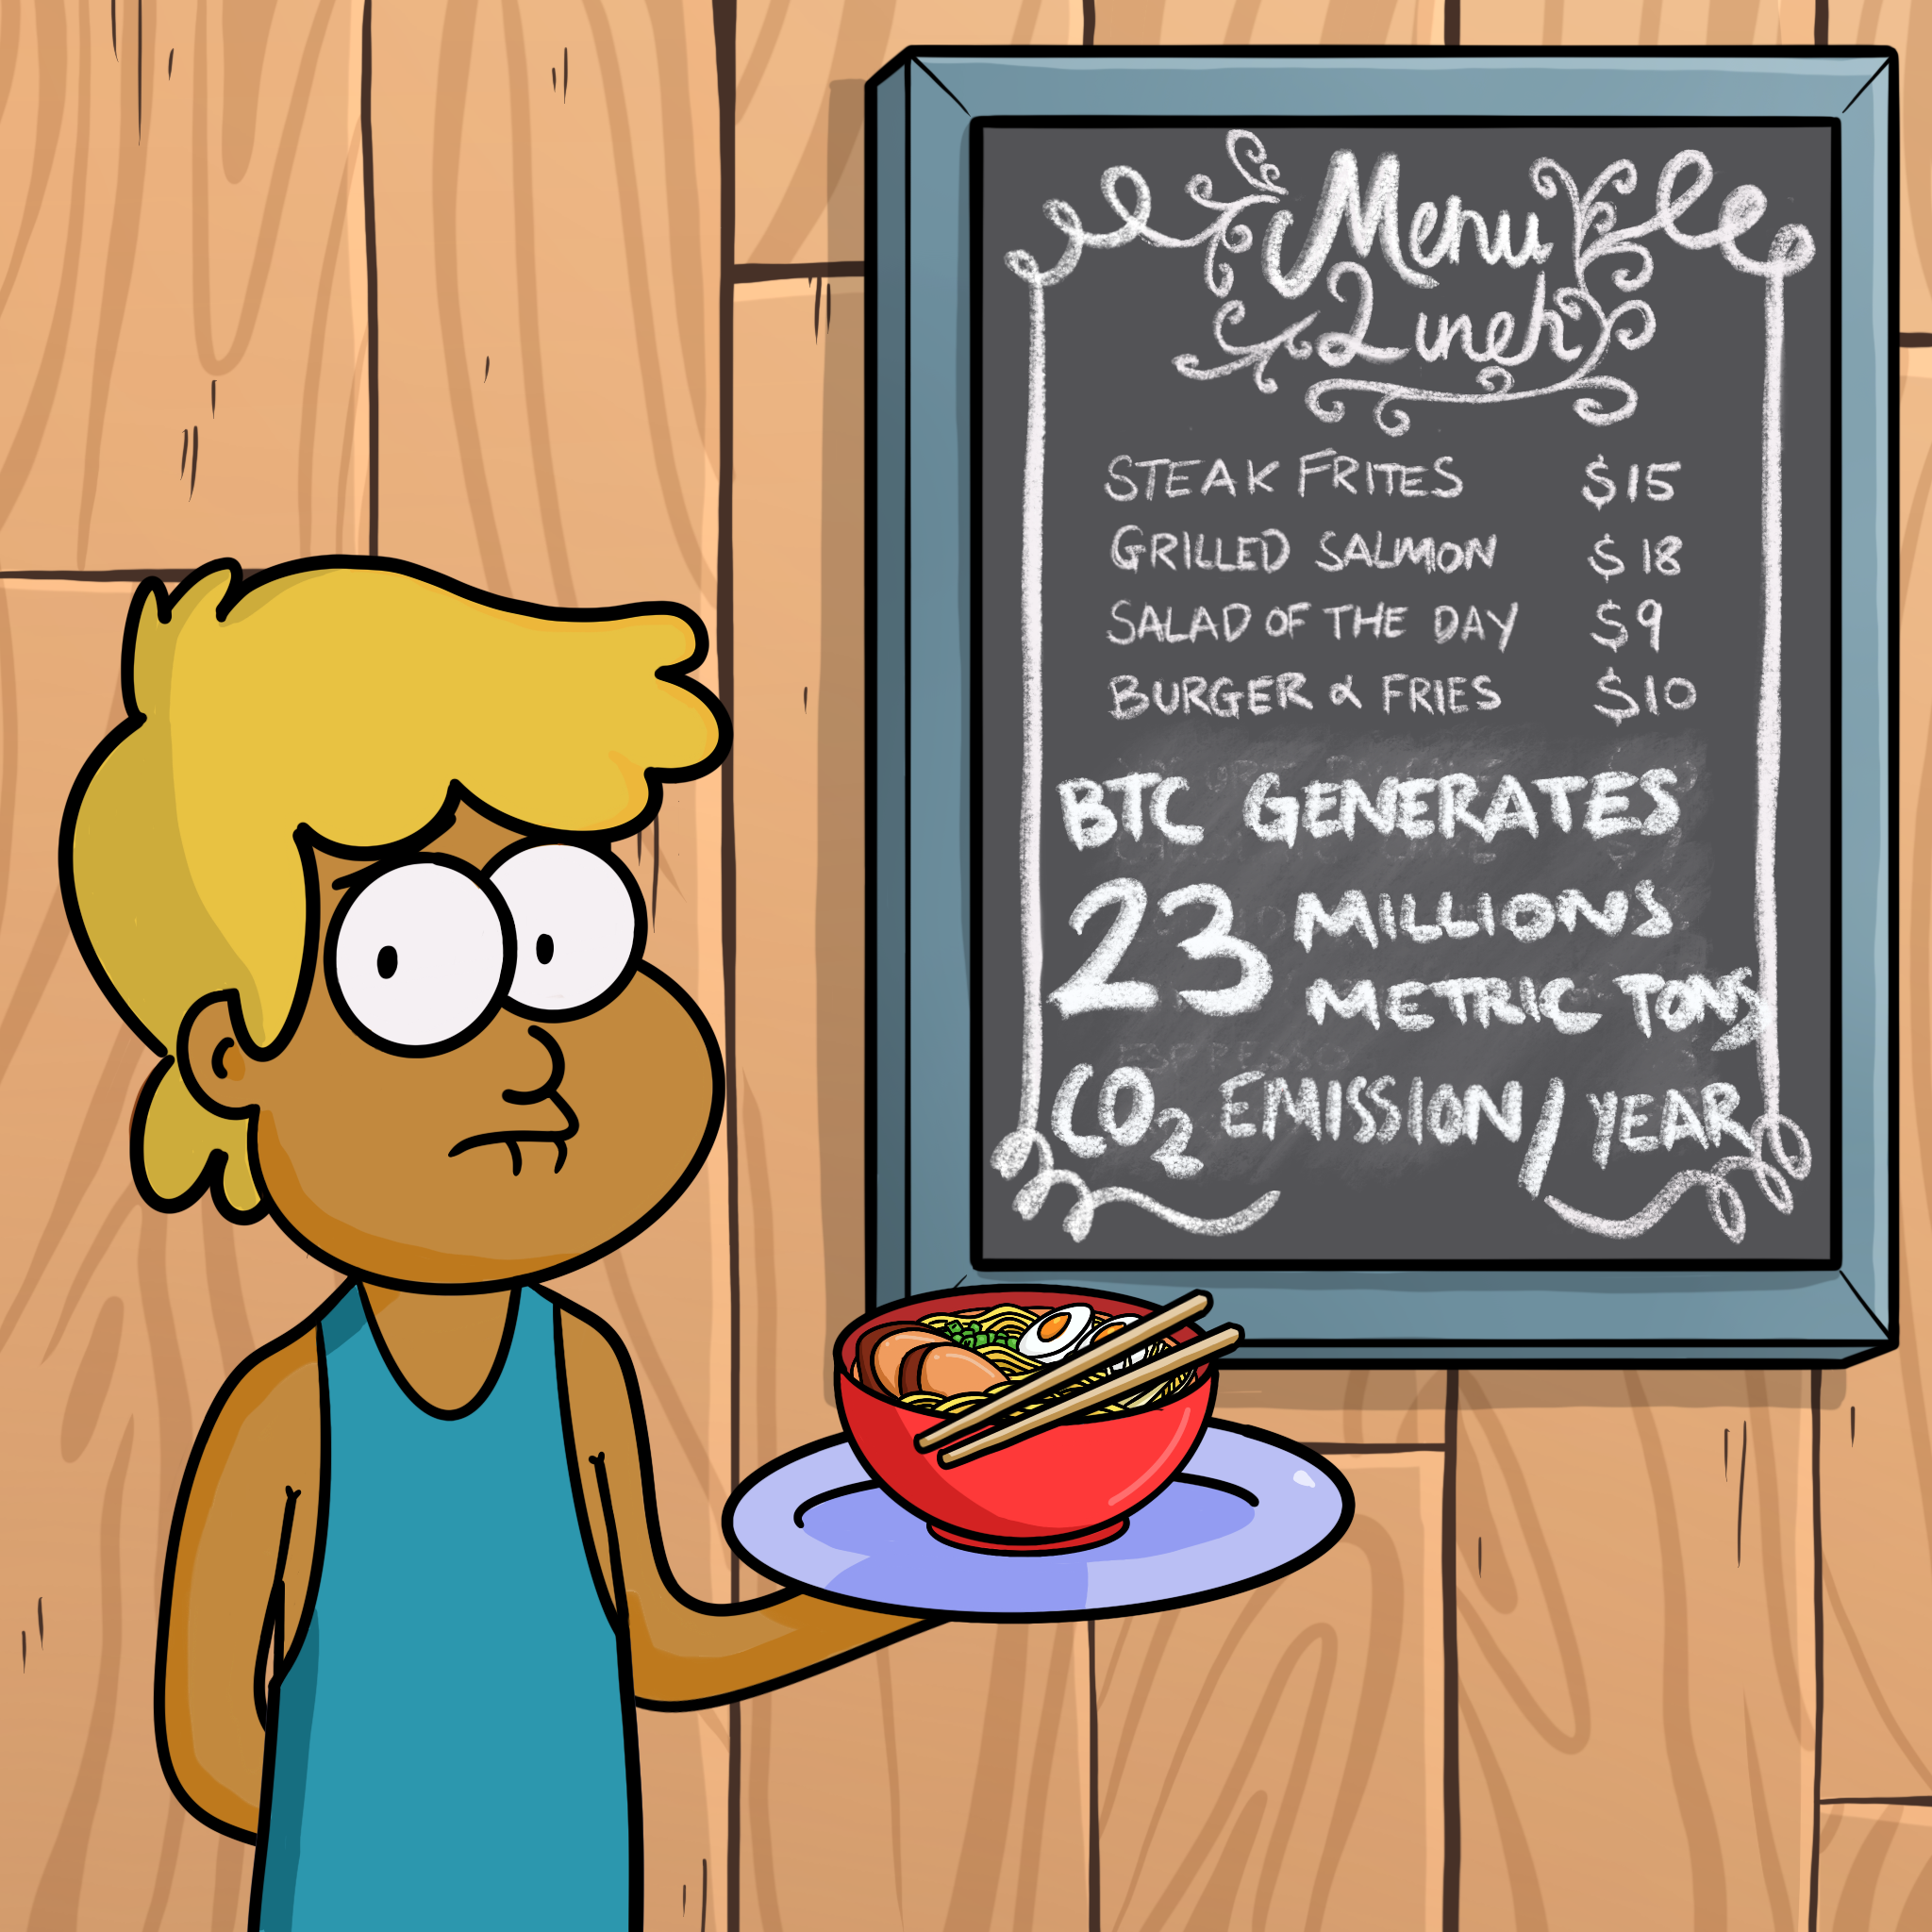 Menu
Lunch
STEAK FRITES $15
GRILLED SALMON $18
SALAD OF THE DAY $9
BURGER & FRIES $10
BTC GENERATES
23 MILLIONS
METRIC TONS
ESPRESSO
CO₂ EMISSION/YEAR